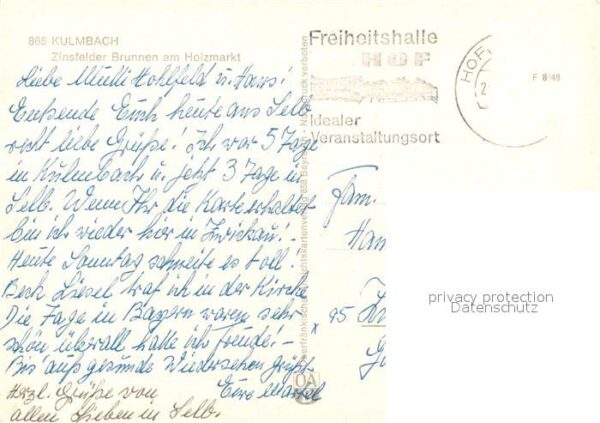 865 KULMBACH
Zinsfelder Brunnen am Holzmarkt
Liebe Mutti Hohlfeld u. Hans!
Entsende Euch heute aus Selb
recht liebe Grüße! Ich war 5 Tage
in Kulmbach u. jetzt 3 Tage in
Selb. Wenn Ihr die Karte erhaltet
bin ich wieder hier in Zwickau! -
Heute Sonntag schneite es toll.
Beck Liesel traf ich in der Kirche
Die Tage in Bayern waren sehr
schön überall hatte ich Freude! -
Bis aufs gesunde Wiedersehen grüßt
Eure
Herzl. Grüße von
allen Lieben in Selb.
Freiheitshalle
HOF
Idealer
Veranstaltungsort
HOF,
2
F 8/48
Fam.
Han
x 95 Zw
privacy protection
Datenschutz
OA